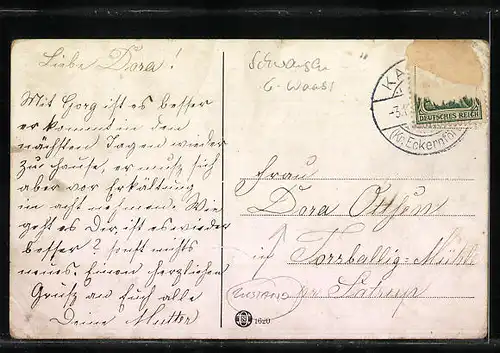 Liebe Dora!
Mit Gorg ist es besser
er kommt in den
nächsten Tagen wieder
zu Hause, er muß sich
aber vor Erkältung
in acht nehmen. Wie
geht es Dir ist es wieder
besser? sonst nichts
neues. Einen herzlichen
Gruß an Euch alle
Deine Mutter
Schwansen
G. Waabs
KA
DEUTSCHES REICH
(Kr. Eckernfö
Frau
Dora Ottsen
in Torsballig-Mühle
ZUSTAND
pr Satrup
1620